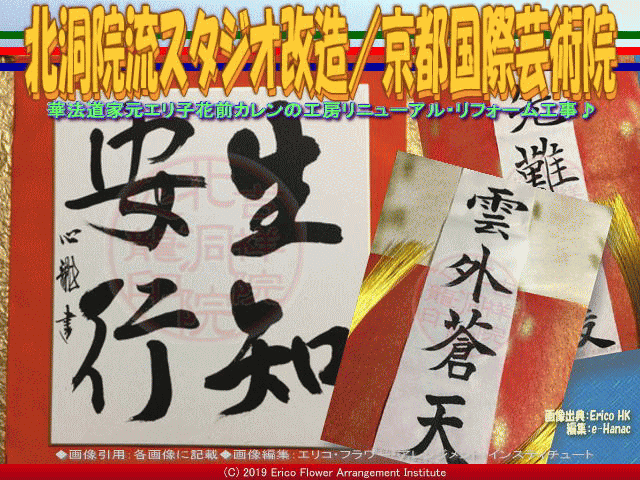 北洞院流スタジオ改造／京都国際芸術院
華法道家元エリ子花前カレンの工房リニューアル・リフォーム工事♪
生知
安行
心龍書
難
雲外蒼天
画像出典：Erico HK
編集：e-Hanac
◆画像引用：各画像に記載◆画像編集：エリコ・フラワーアレンジメント・インスティチュート
(C) 2019 Erico Flower Arrangement Institute